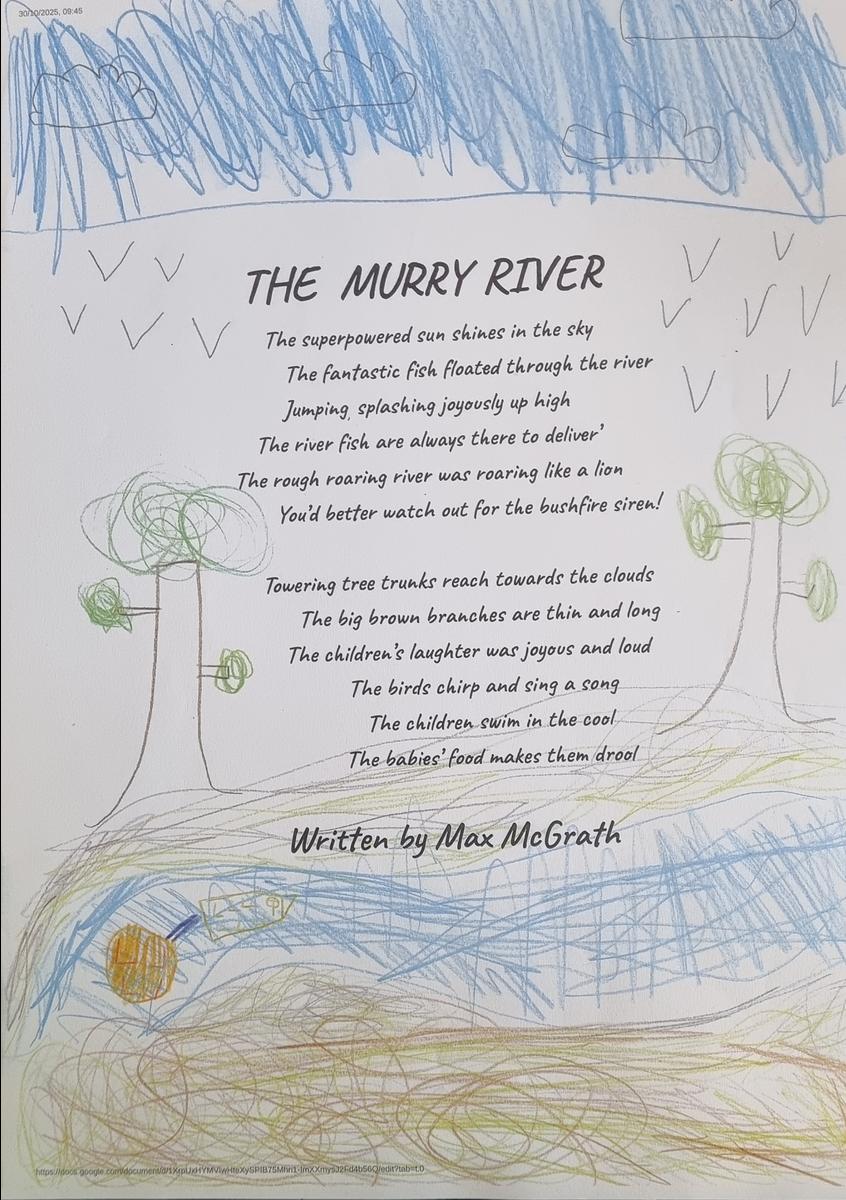 30/10/2025, 09:45
THE MURRY RIVER
The superpowered sun shines in the sky
The fantastic fish floated through the river
Jumping, splashing joyously up high
The river fish are always there to deliver'
The rough roaring river was roaring like a lion
You'd better watch out for the bushfire siren!
Towering tree trunks reach towards the clouds
The big brown branches are thin and long
The children's laughter was joyous and loud
The birds chirp and sing a song
The children swim in the cool
The babies' food makes them drool
Written by Max McGrath